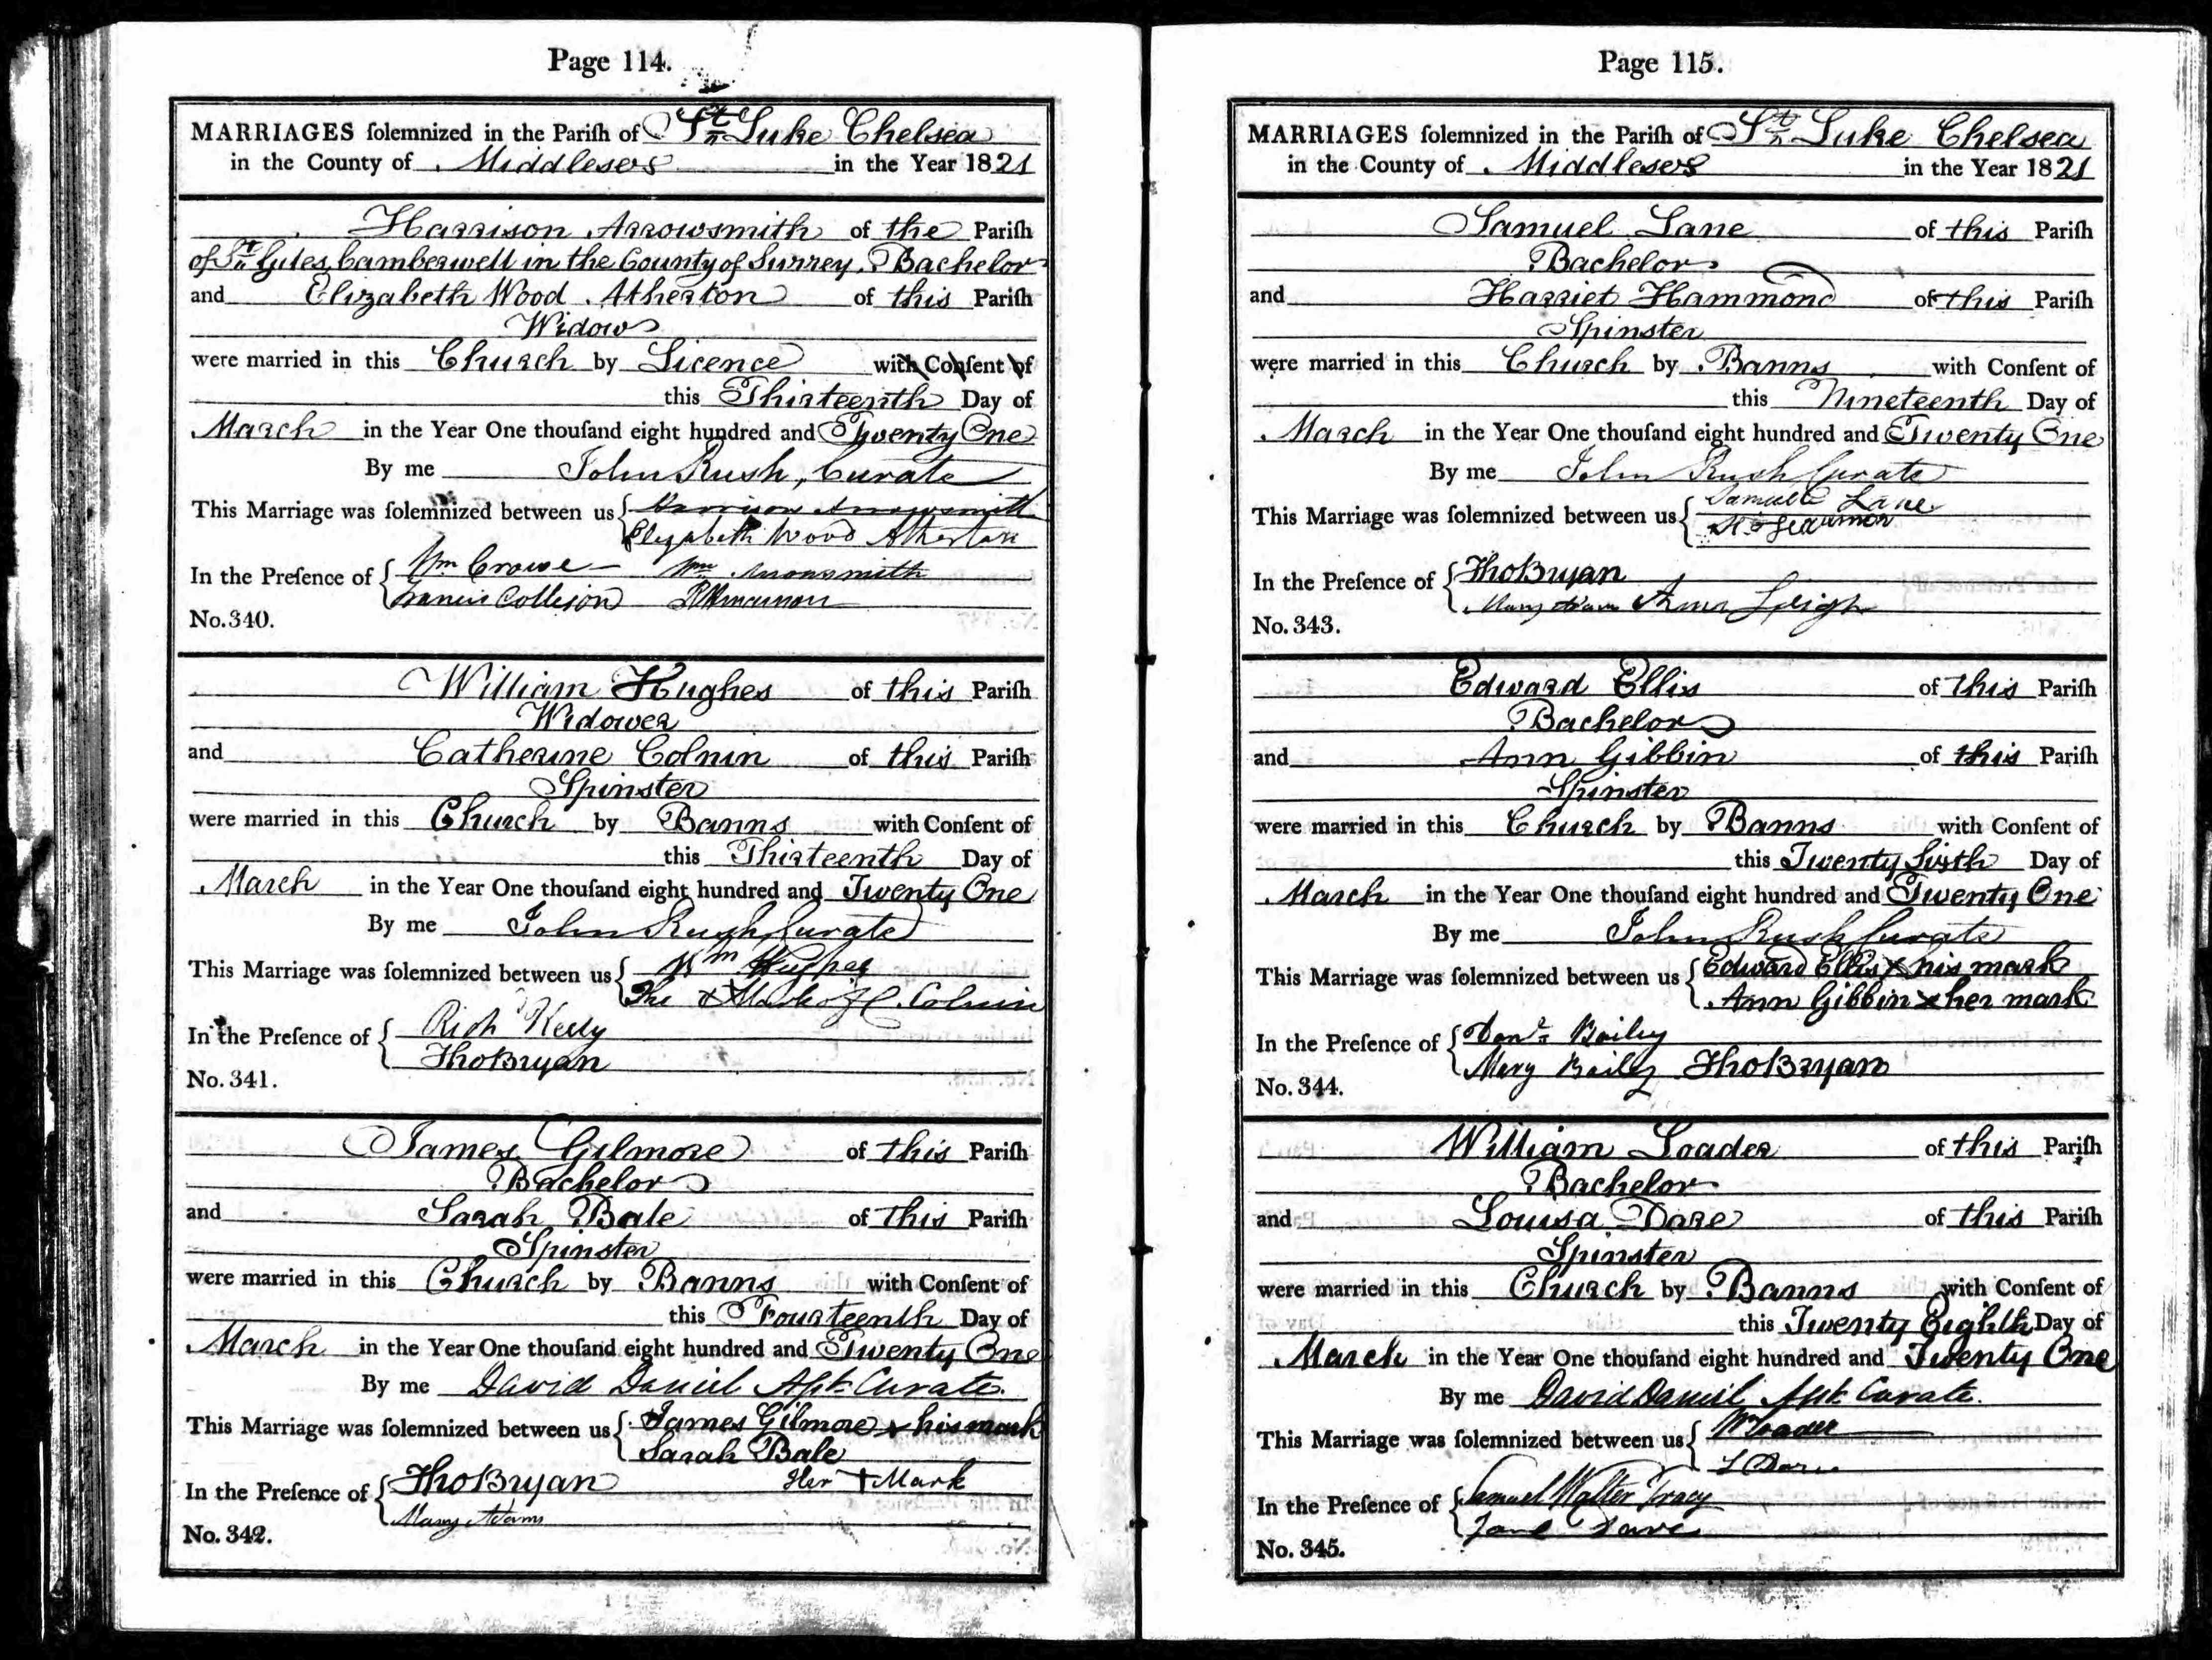 Page 114.
MARRIAGES ſolemnized in the Pariſh of St. Luke Chelsea
in the County of Middlesex in the Year 1821
Harrison Arrowsmith of the Pariſh
of St. Giles Camberwell in the County of Surrey, Bachelor
and Elizabeth Wood Atherton of this Pariſh
Widow
were married in this Church by Licence with Conſent of
this Thirteenth Day of
March in the Year One thouſand eight hundred and Twenty One
By me John Rush, Curate
This Marriage was ſolemnized between us Harrison Arrowsmith
Elizabeth Wood Atherton
In the Preſence of Wm Crowe Wm Arrowsmith
Francis Collison
No. 340.
William Hughes of this Pariſh
Widower
and Catherine Colnin of this Pariſh
Spinster
were married in this Church by Banns with Conſent of
this Thirteenth Day of
March in the Year One thouſand eight hundred and Twenty One
By me John Rush Curate
This Marriage was ſolemnized between us Wm Hughes
The x Mark of C. Colnin
In the Preſence of Richd Kelly
Tho Bryan
No. 341.
James Gilmore of this Pariſh
Bachelor
and Sarah Bale of this Pariſh
Spinster
were married in this Church by Banns with Conſent of
this Fourteenth Day of
March in the Year One thouſand eight hundred and Twenty One
By me David Daniel Asst. Curate.
This Marriage was ſolemnized between us James Gilmore x his mark
Sarah Bale
Her + Mark
In the Preſence of Tho Bryan
Mary Adams
No. 342.
Page 115.
MARRIAGES ſolemnized in the Pariſh of St. Luke Chelsea
in the County of Middlesex in the Year 1821
Samuel Lane of this Pariſh
Bachelor
and Harriet Hammond of this Pariſh
Spinster
were married in this Church by Banns with Conſent of
this Nineteenth Day of
March in the Year One thouſand eight hundred and Twenty One
By me John Rush Curate
This Marriage was ſolemnized between us Samuel Lane
In the Preſence of Tho Bryan
Mary Adams Ann Leigh
No. 343.
Edward Ellis of this Pariſh
Bachelor
and Ann Gibbin of this Pariſh
Spinster
were married in this Church by Banns with Conſent of
this Twenty Sixth Day of
March in the Year One thouſand eight hundred and Twenty One
By me John Rush Curate
This Marriage was ſolemnized between us Edward Ellis x his mark
Ann Gibbin x her mark
In the Preſence of Danl. Bailey
Mary Bailey Tho Bryan
No. 344.
William Loader of this Pariſh
Bachelor
and Louisa Dare of this Pariſh
Spinster
were married in this Church by Banns with Conſent of
this Twenty Eighth Day of
March in the Year One thouſand eight hundred and Twenty One
By me David Daniel Asst. Curate.
This Marriage was ſolemnized between us W Loader
L Dare
In the Preſence of Samuel Walter Tracy
Jane Dare
No. 345.